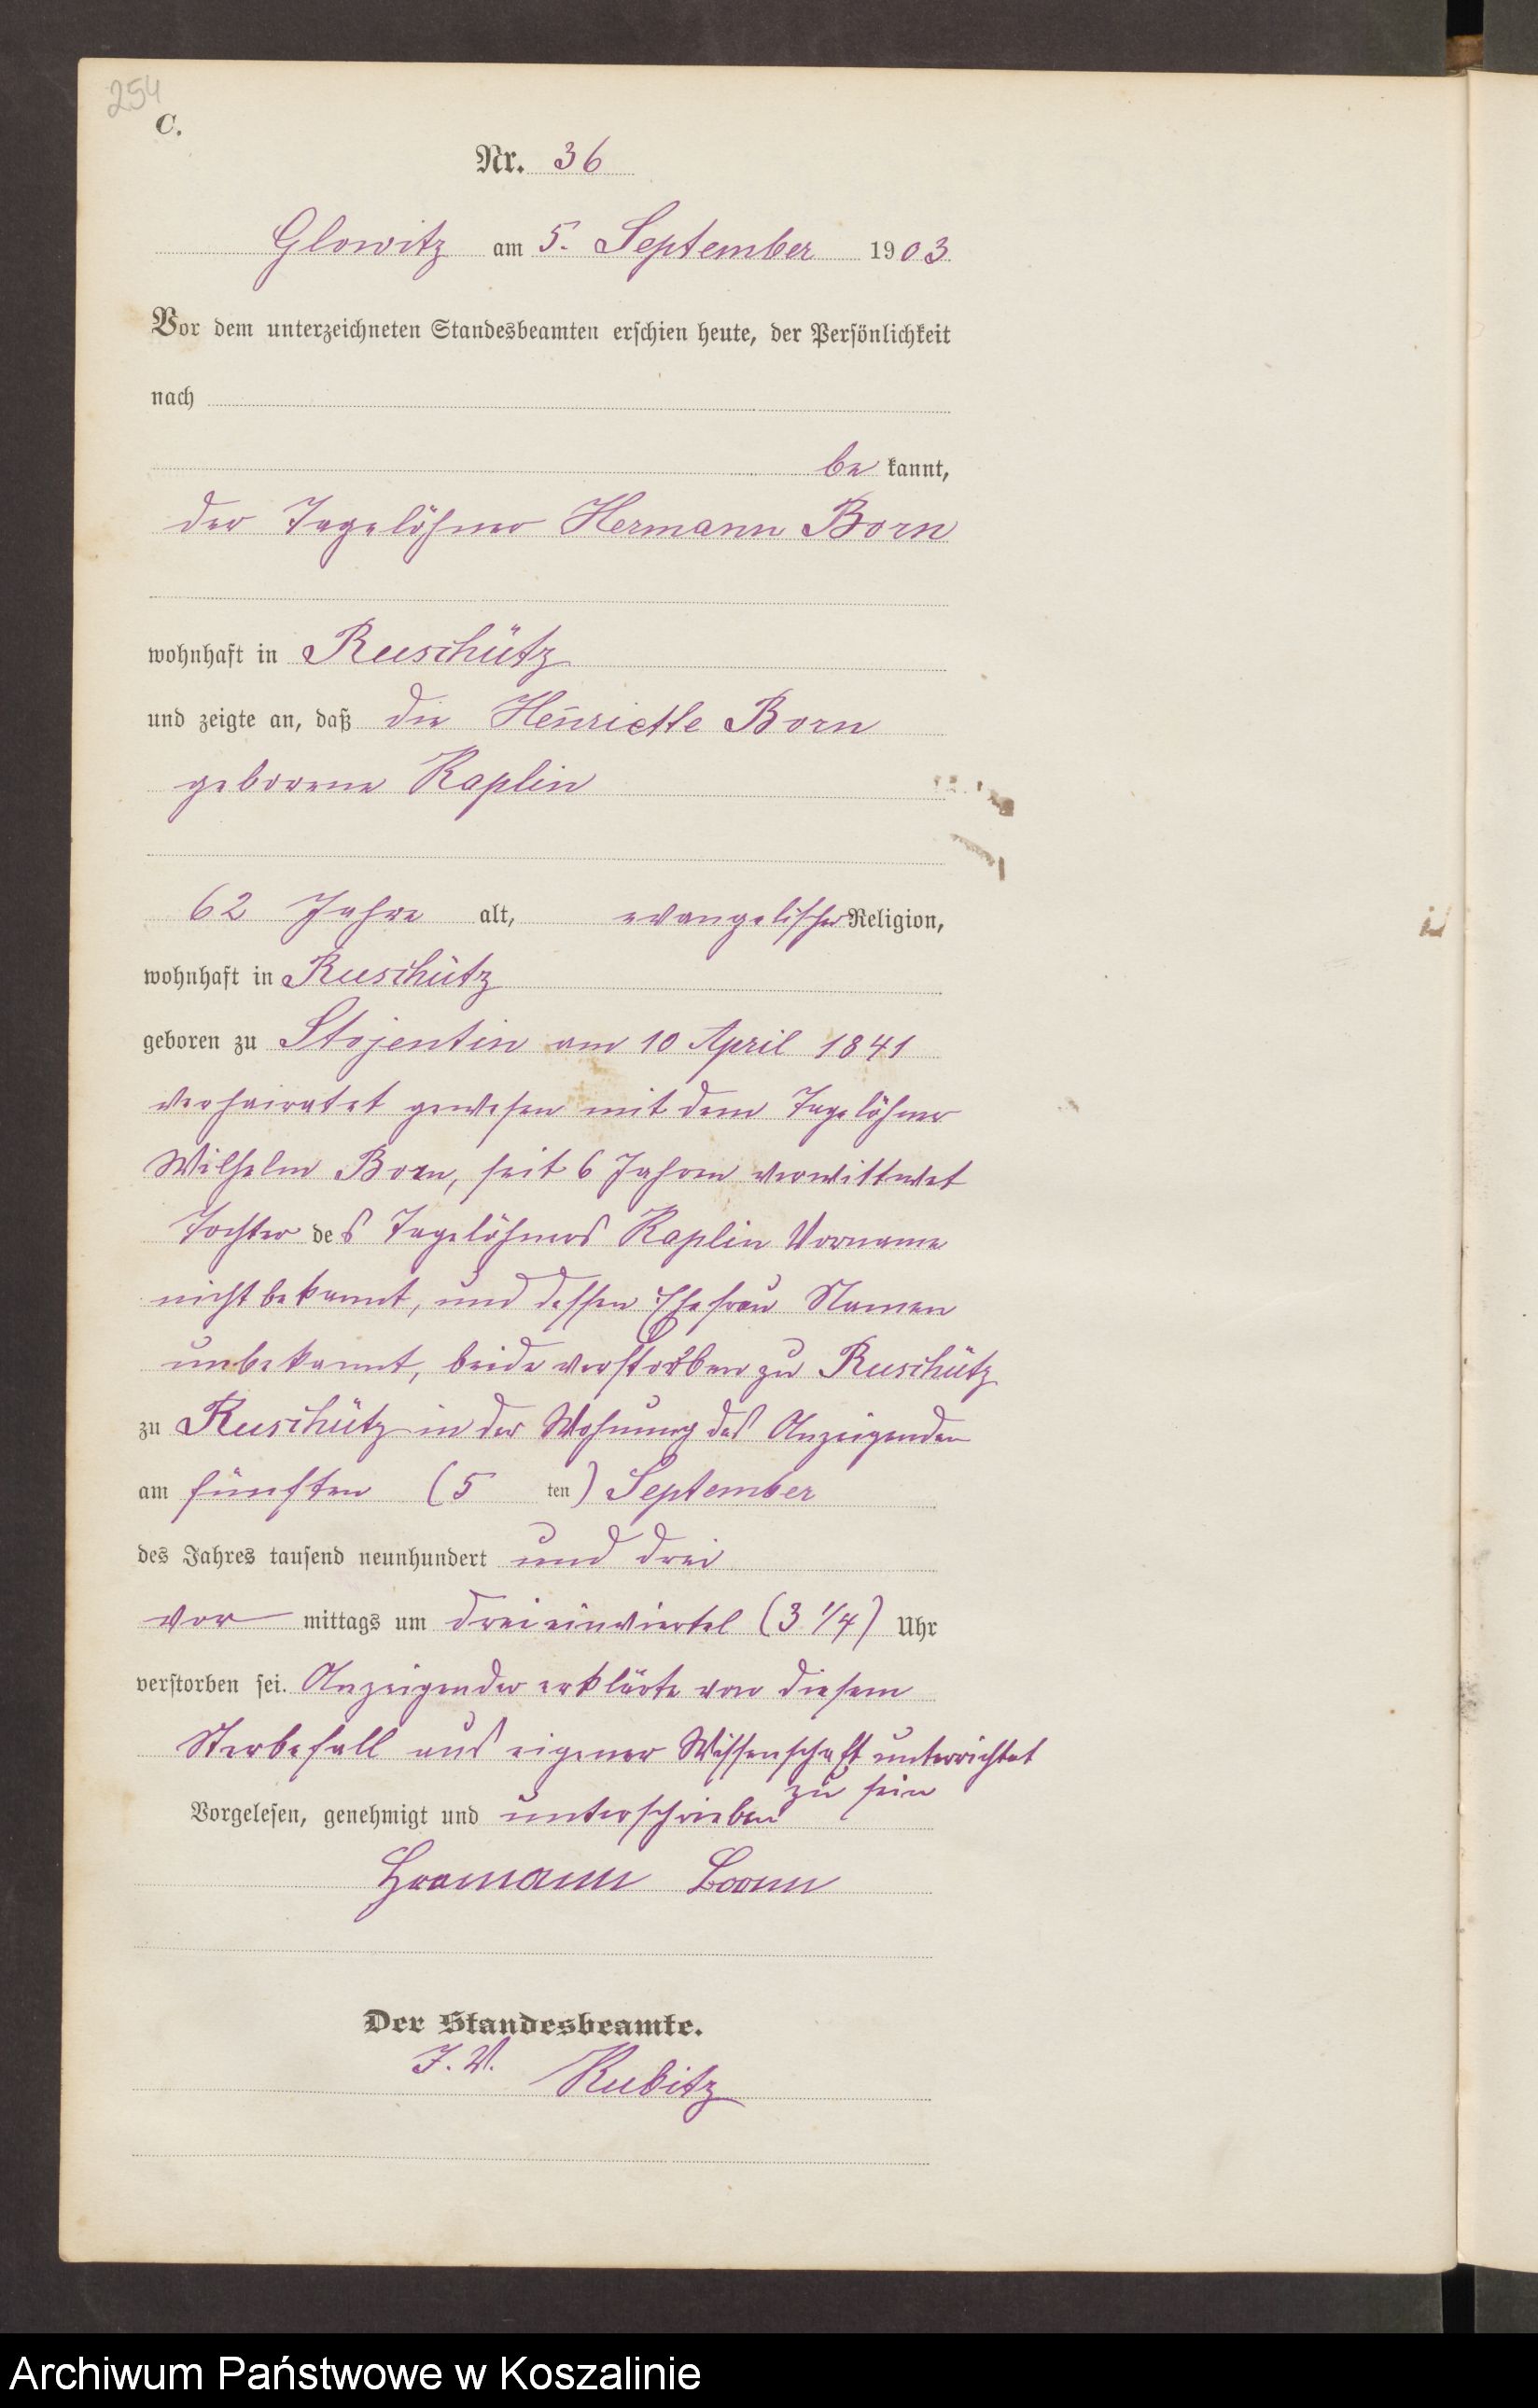 254
C.
Nr. 36
Glowitz am 5. September 1903
Vor dem unterzeichneten Standesbeamten erschien heute, der Persönlichkeit
nach
be kannt,
der Tagelöhner Hermann Born
wohnhaft in Ruschütz
und zeigte an, daß die Henriette Born
geborene Raplin
62 Jahre alt, evangelischer Religion,
wohnhaft in Ruschütz
geboren zu Stojentin am 10 April 1841
verheiratet gewesen mit dem Tagelöhner
Wilhelm Born, seit 6 Jahren verwittwet
Tochter des Tagelöhners Raplin Vorname
nicht bekannt, und dessen Ehefrau Namen
unbekannt, beide verstorben zu Ruschütz
zu Ruschütz in der Wohnung des Anzeigenden
am fünften (5 ten) September
des Jahres tausend neunhundert und drei
vor mittags um dreieinviertel (3 1/4) Uhr
verstorben sei. Anzeigender erklärte von diesem
Sterbefall aus eigener Wissenschaft unterrichtet
zu sein
Vorgelesen, genehmigt und unterschrieben
Hermann Born
Der Standesbeamte.
I. V. Rubitz
Archiwum Państwowe w Koszalinie